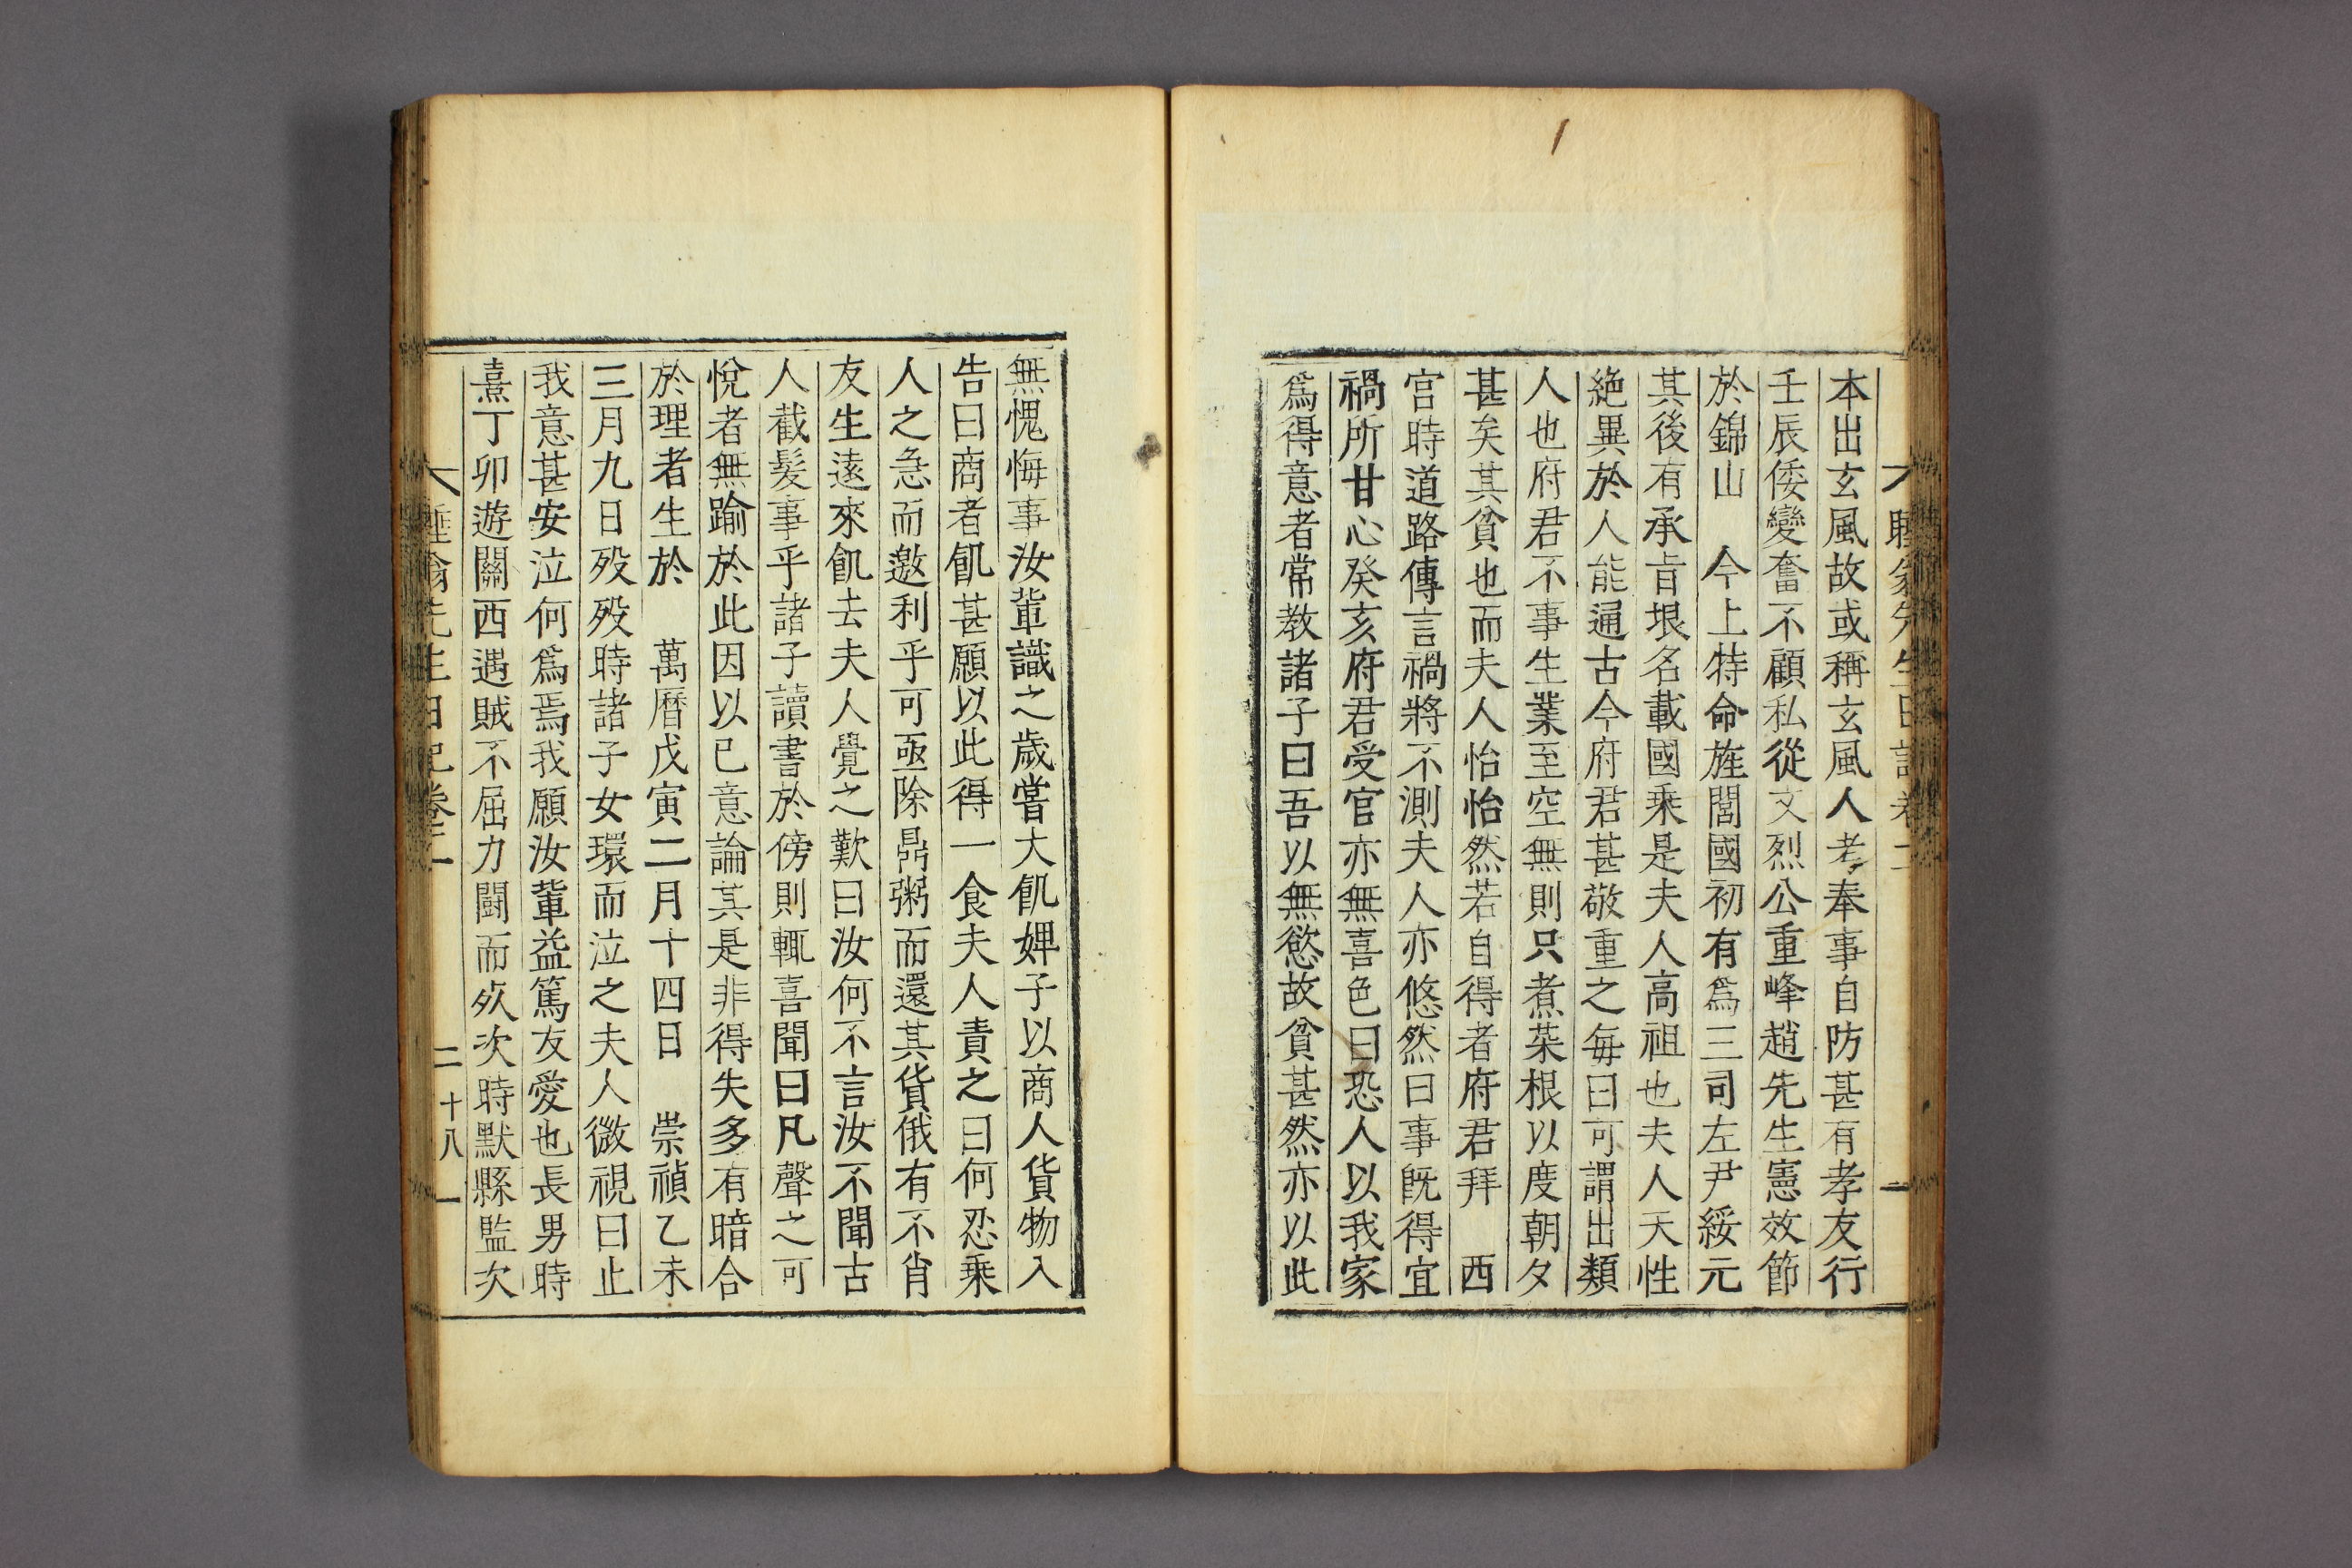 本出玄風故或稱玄風人考奉事自防甚有孝友行
壬辰倭變奮不顧私從文烈公重峰趙先生憲效節
於錦山 今上特命旌閭國初有爲三司左尹綏元
其後有承旨垠名載國乘是夫人高祖也夫人天性
絶異於人能通古今府君甚敬重之每曰可謂出類
人也府君不事生業至空無則只煮菜根以度朝夕
甚矣其貧也而夫人怡怡然若自得者府君拜 西
宮時道路傳言禍將不測夫人亦悠然曰事旣得宜
禍所甘心癸亥府君受官亦無喜色曰恐人以我家
爲得意者常敎諸子曰吾以無慾故貧甚然亦以此
無愧悔事汝輩識之歲嘗大飢婢子以商人貨物入
告曰商者飢甚願以此得一食夫人責之曰何忍乗
人之急而邀利乎可亟除鼎粥而還其貨俄有不肖
友生遠來飢去夫人覺之歎曰汝何不言汝不聞古
人截髮事乎諸子讀書於傍則輒喜聞曰凡聲之可
悅者無踰於此因以已意論其是非得失多有暗合
於理者生於 萬曆戊寅二月十四日 崇禎乙未
三月九日歿歿時諸子女環而泣之夫人微視曰止
我意甚安泣何爲焉我願汝輩益篤友愛也長男時
熹丁卯遊關西遇賊不屈力鬪而死次時默縣監次
睡翁先生日記卷二
二 十八